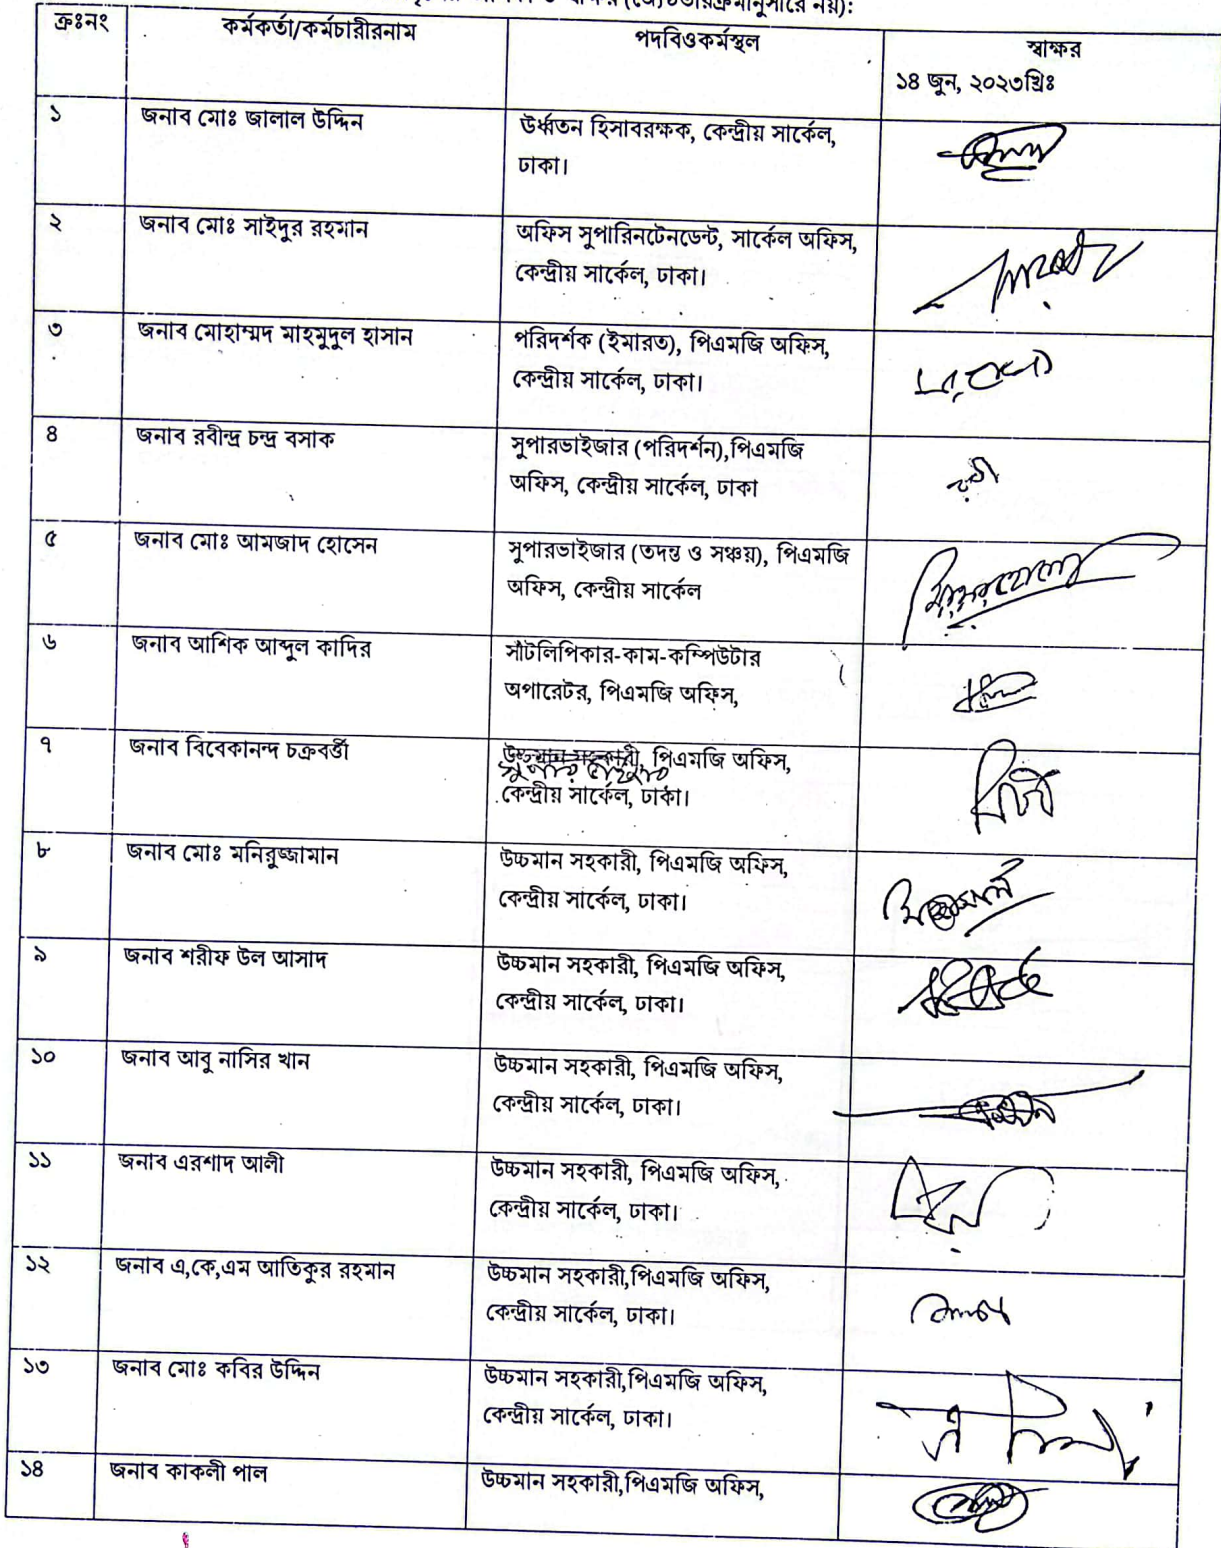 (জ্যেষ্ঠতারক্রমানুসারে নয়):
ক্রঃনং
কর্মকর্তা/কর্মচারীরনাম
পদবিওকর্মস্থল
স্বাক্ষর
১৪ জুন, ২০২৩খ্রিঃ
১
জনাব মোঃ জালাল উদ্দিন
উর্ধ্বতন হিসাবরক্ষক, কেন্দ্রীয় সার্কেল,
ঢাকা।
২
জনাব মোঃ সাইদুর রহমান
অফিস সুপারিনটেনডেন্ট, সার্কেল অফিস,
কেন্দ্রীয় সার্কেল, ঢাকা।
৩
জনাব মোহাম্মদ মাহমুদুল হাসান
পরিদর্শক (ইমারত), পিএমজি অফিস,
কেন্দ্রীয় সার্কেল, ঢাকা।
৪
জনাব রবীন্দ্র চন্দ্র বসাক
সুপারভাইজার (পরিদর্শন),পিএমজি
অফিস, কেন্দ্রীয় সার্কেল, ঢাকা
৫
জনাব মোঃ আমজাদ হোসেন
সুপারভাইজার (তদন্ত ও সঞ্চয়), পিএমজি
অফিস, কেন্দ্রীয় সার্কেল
৬
জনাব আশিক আব্দুল কাদির
সাঁটলিপিকার-কাম-কম্পিউটার
অপারেটর, পিএমজি অফিস,
৭
জনাব বিবেকানন্দ চক্রবর্ত্তী
উচ্চমান সহকারী, পিএমজি অফিস,
কেন্দ্রীয় সার্কেল, ঢাকা।
৮
জনাব মোঃ মনিরুজ্জামান
উচ্চমান সহকারী, পিএমজি অফিস,
কেন্দ্রীয় সার্কেল, ঢাকা।
৯
জনাব শরীফ উল আসাদ
উচ্চমান সহকারী, পিএমজি অফিস,
কেন্দ্রীয় সার্কেল, ঢাকা।
১০
জনাব আবু নাসির খান
উচ্চমান সহকারী, পিএমজি অফিস,
কেন্দ্রীয় সার্কেল, ঢাকা।
১১
জনাব এরশাদ আলী
উচ্চমান সহকারী, পিএমজি অফিস,
কেন্দ্রীয় সার্কেল, ঢাকা।
১২
জনাব এ,কে,এম আতিকুর রহমান
উচ্চমান সহকারী,পিএমজি অফিস,
কেন্দ্রীয় সার্কেল, ঢাকা।
১৩
জনাব মোঃ কবির উদ্দিন
উচ্চমান সহকারী,পিএমজি অফিস,
কেন্দ্রীয় সার্কেল, ঢাকা।
১৪
জনাব কাকলী পাল
উচ্চমান সহকারী,পিএমজি অফিস,